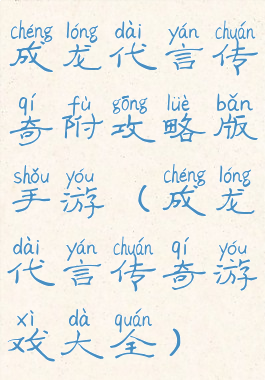 chéng lóng dài yán chuán
成龙代言传
qí fù gōng lüè bǎn
奇附攻略版
shǒu yóu chéng lóng
手游（成龙
dài yán chuán qí yóu
代言传奇游
xì dà quán
戏大全）